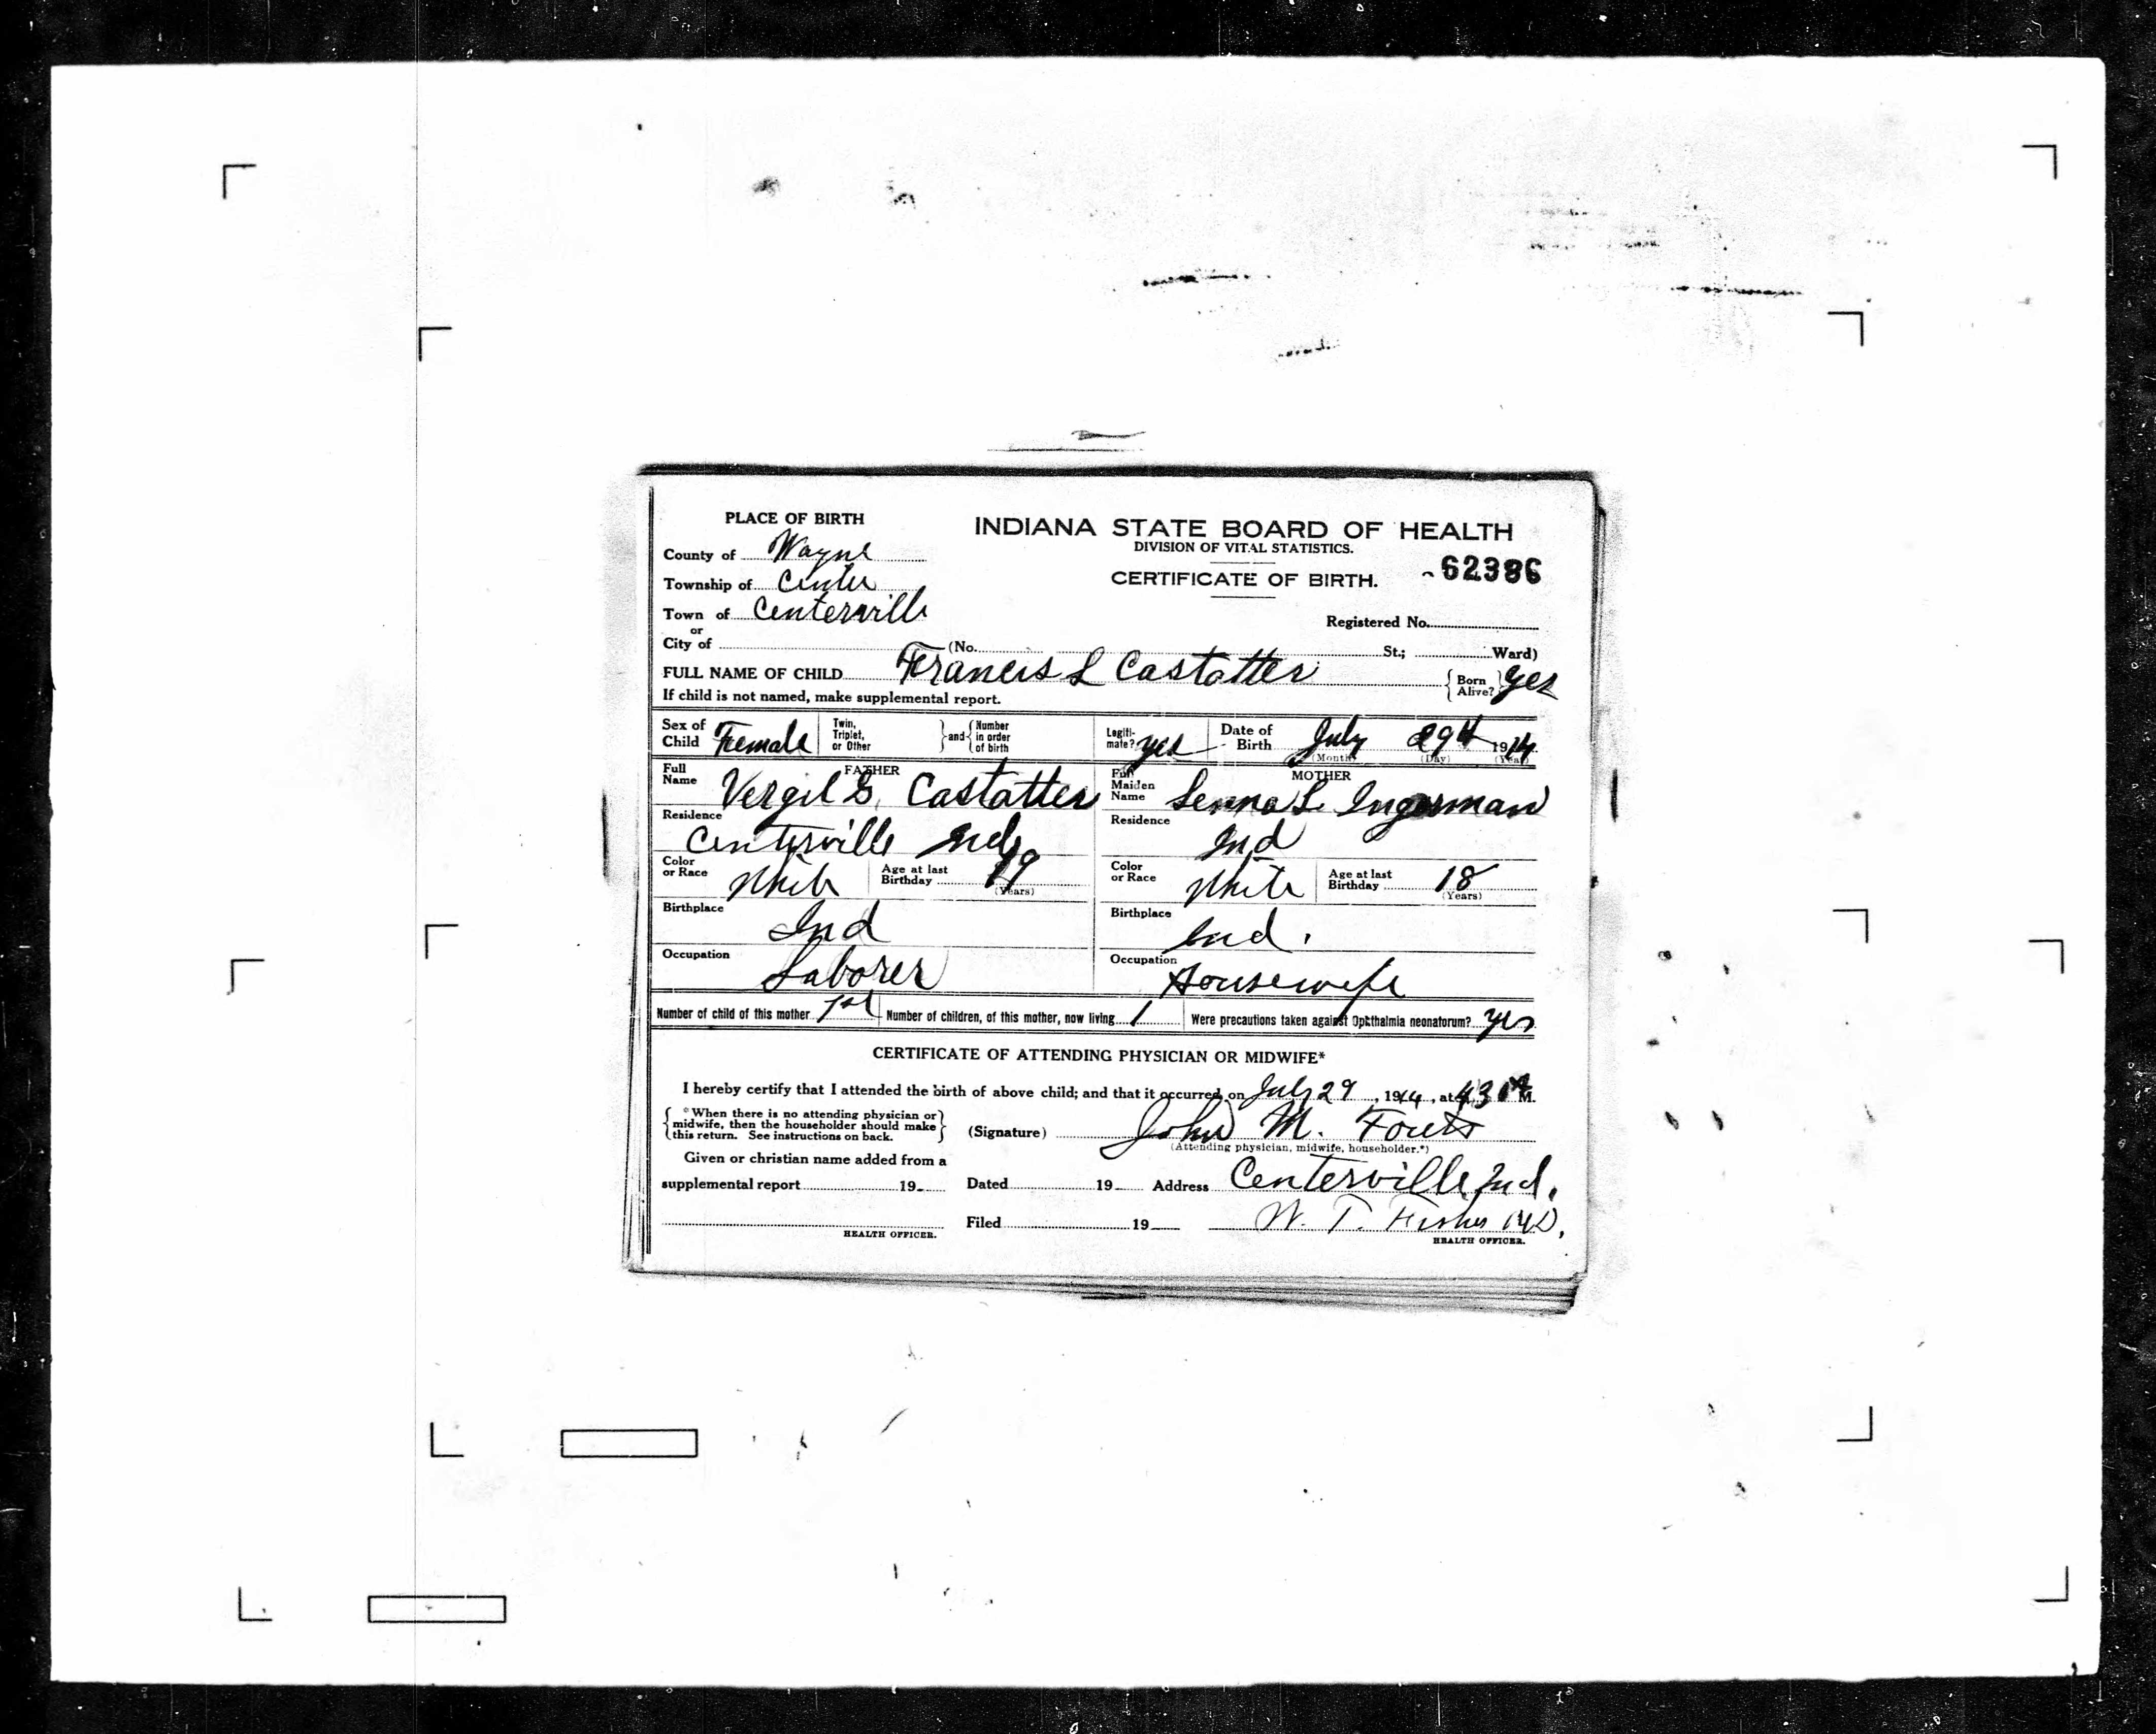 PLACE OF BIRTH
INDIANA STATE BOARD OF HEALTH
DIVISION OF VITAL STATISTICS.
CERTIFICATE OF BIRTH. 62386
County of Wayne
Township of Center
Town of Centerville
or
City of (No. St.; Ward)
Registered No.
FULL NAME OF CHILD Francis L Castatter { Born Alive? } yes
If child is not named, make supplemental report.
Sex of Child Female Twin, Triplet, or Other } and { Number in order of birth Legiti-mate? yes Date of Birth July 29th 1914
(Month) (Day) (Year)
FATHER
Full Name Vergil Castatter
Residence Centerville Ind
Color or Race White Age at last Birthday 19 (Years)
Birthplace Ind
Occupation Laborer
MOTHER
Full Maiden Name L. Ingerman
Residence Ind
Color or Race White Age at last Birthday 18 (Years)
Birthplace Ind.
Occupation Housewife
Number of child of this mother 1st Number of children, of this mother, now living 1 Were precautions taken against Ophthalmia neonatorum? yes
CERTIFICATE OF ATTENDING PHYSICIAN OR MIDWIFE*
I hereby certify that I attended the birth of above child; and that it occurred on July 29, 1914, at 430 M.
{ *When there is no attending physician or midwife, then the householder should make this return. See instructions on back. }
(Signature) John M. Fouts
(Attending physician, midwife, householder.*)
Given or christian name added from a
supplemental report 19
Dated 19 Address Centerville, Ind.
Filed 19 W. T. Fisher MD.
HEALTH OFFICER.
HEALTH OFFICER.